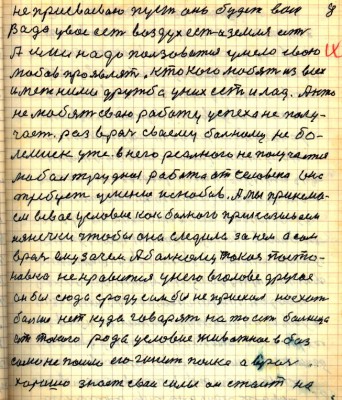 не присваеваю пусть онь будет вам
Вода у вас есть воздух есть земля есть
А ими надо ползоватся умело свою IX
любов проявлят. кто кого любят из всех
имеет ними дружба у них есть и лад. А кто
не любят сваю работу успеха не полу-
чает. раз врач своему балному не бо-
лельшик уже. в него реалного не получается
любая трудная работа от человека она
требует умение и любов. А мы принема-
ем ево в условие как балного приказиваем
нянечки чтобы она следила за нем а сам
врач ему зачем А балному такая поста-
навка не нравится у него в голове другое
он бы сюда сроду сам бы не приехал но ехат
болше нет куда говарят на то ест балница
от такого рода условие животное в баз
само не пошло его гинит палка а врач
харашо знает сваи силы он стаит на